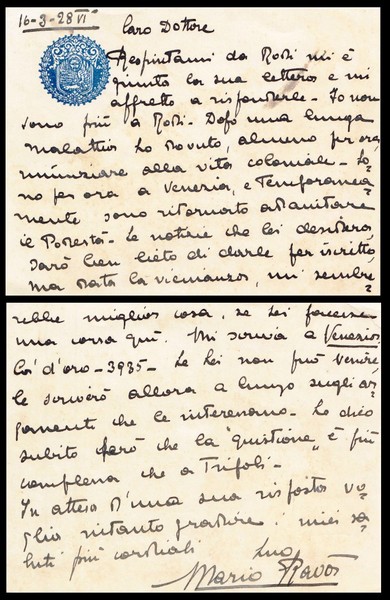 16-3-28 VI
Caro Dottore
Respintami da Rodi mi è
giunta la sua lettera e mi
affretto a risponderle - Io non
sono più a Rodi. Dopo una lunga
malattia ho dovuto, almeno per ora
rinunziare alla vita coloniale. So-
no per ora a Venezia, e temporanea-
mente sono ritornato a
il Podestà. Le notizie che lei desidera
sarò ben lieto di darle per iscritto
ma data la vicinanza, mi sembre-
rebbe miglior cosa, se lei facesse
una corsa qui. Mi scriva a Venezia
Cà d'oro - 3935 - Se lei non può venire,
le scriverò allora a lungo sugli ar-
gomenti che le interessano. Le dico
subito però che la "quistione" è più
complessa che a Tripoli -
In attesa d'una sua risposta vo-
glia intanto gradire i miei sa-
luti più cordiali
Suo
Mario